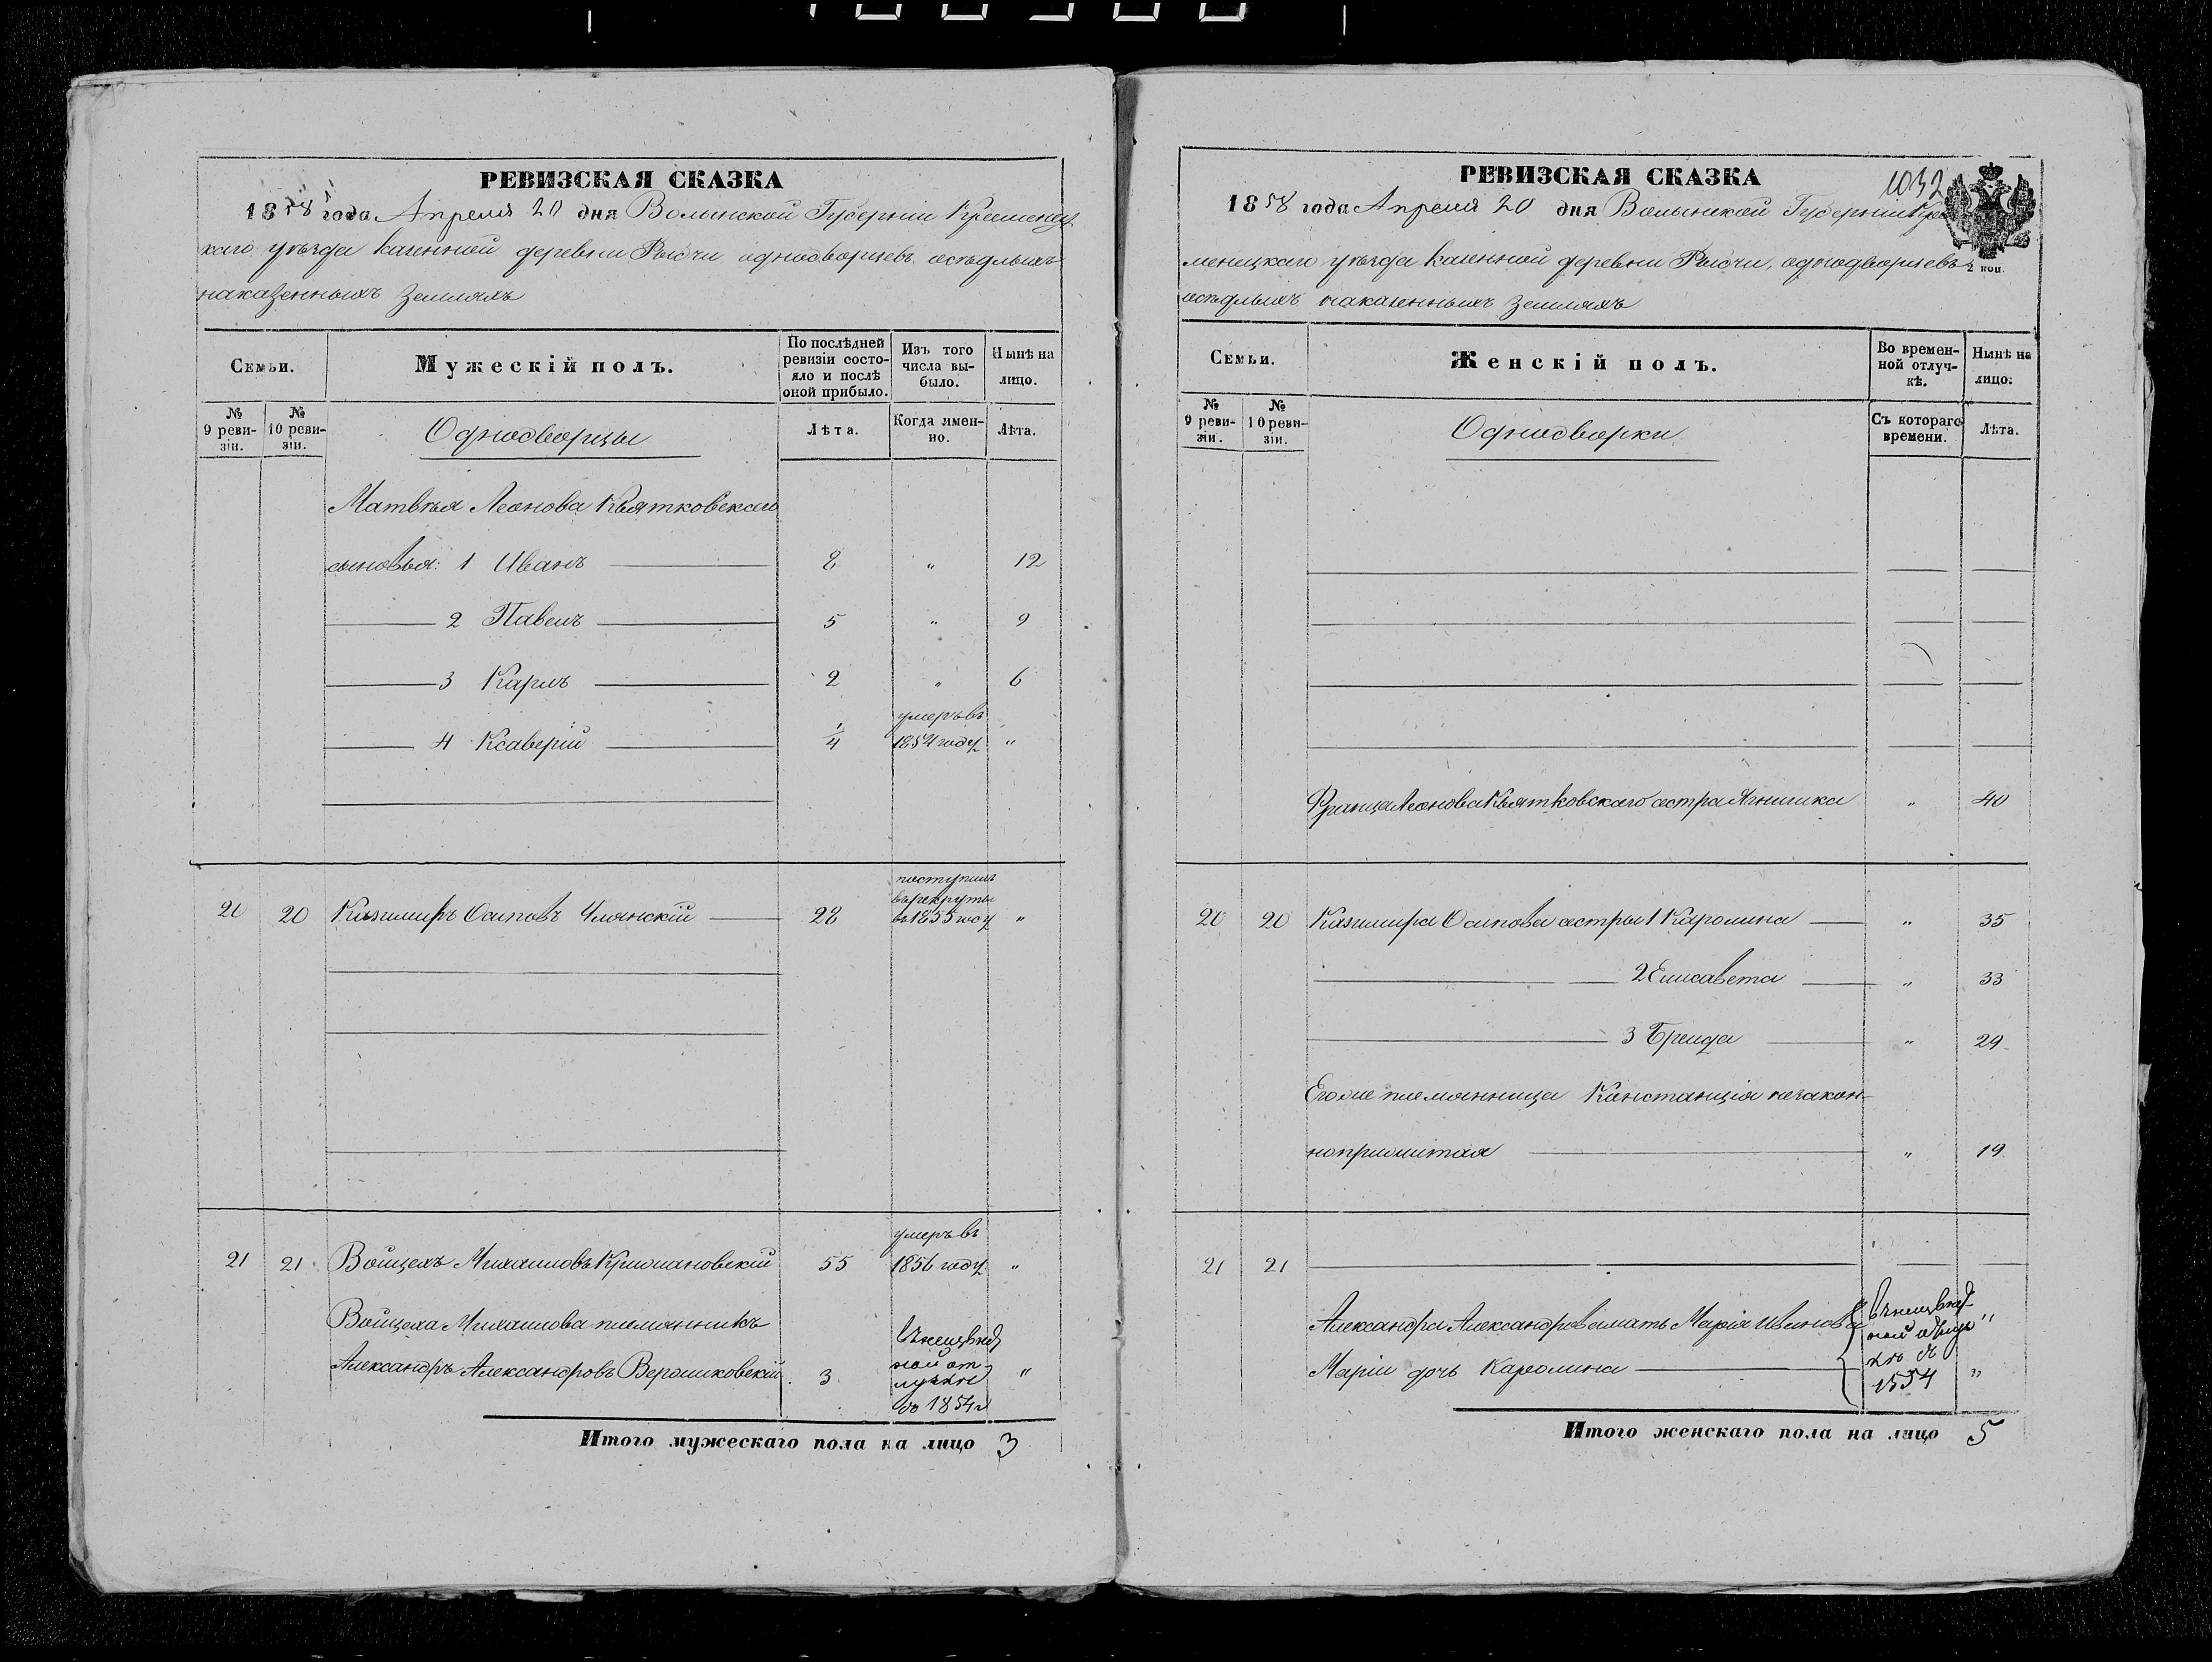 РЕВИЗСКАЯ СКАЗКА
1858 года Апреля 20 дня Волынской Губерніи Кременец
каго уѣзда казенной деревни Рыдчи однодворцевъ осѣдлыхъ
наказенныхъ земляхъ
Семьи.
Мужескій полъ.
По послѣдней ревизіи состояло и послѣ оной прибыло.
Изъ того числа выбыло.
Ныне на лицо.
№ 9 ревизіи.
№ 10 ревизіи.
Однодворцы
Лѣта.
Когда именно.
Лѣта.
Матвѣя Леонова Квятковскаго
сыновья: 1 Иванъ 8 " 12
2 Павелъ 5 " 9
3 Карлъ 2 " 6
4 Ксаверій 1/4 умеръ въ 1854 году "
20 20 Казимиръ Осиповъ 28 поступилъ въ рекруты въ 1855 году "
21 21 Войцехъ Михаиловъ Крижановскій 55 умеръ въ 1856 году "
Войцеха Михаилова племянникъ
Александръ Александровъ 3 "
Итого мужескаго пола на лицо 3
РЕВИЗСКАЯ СКАЗКА
1032
1858 года Апреля 20 дня Волынской Губерніи Кре
менецкаго уѣзда казенной деревни Рыдчи, однодворцевъ
2 коп.
осѣдлыхъ наказенныхъ земляхъ
Семьи.
Женскій полъ.
Во временной отлучкѣ.
Нынѣ на лицо.
№ 9 ревизіи.
№ 10 ревизіи.
Однодворки
Съ котораго времени.
Лѣта.
Франца Леонова Квятковскаго сестра " 40
20 20 Казимира Осипова сестры 1 Каролина " 35
2 Елисавета " 33
3 " 29
Егоже племянница Констанція незакон-
ноприжитая " 19
21 21
Александра Александрова мать Марія Иванова "
Маріи дочь Каролина 1854 "
Итого женскаго пола на лицо 5